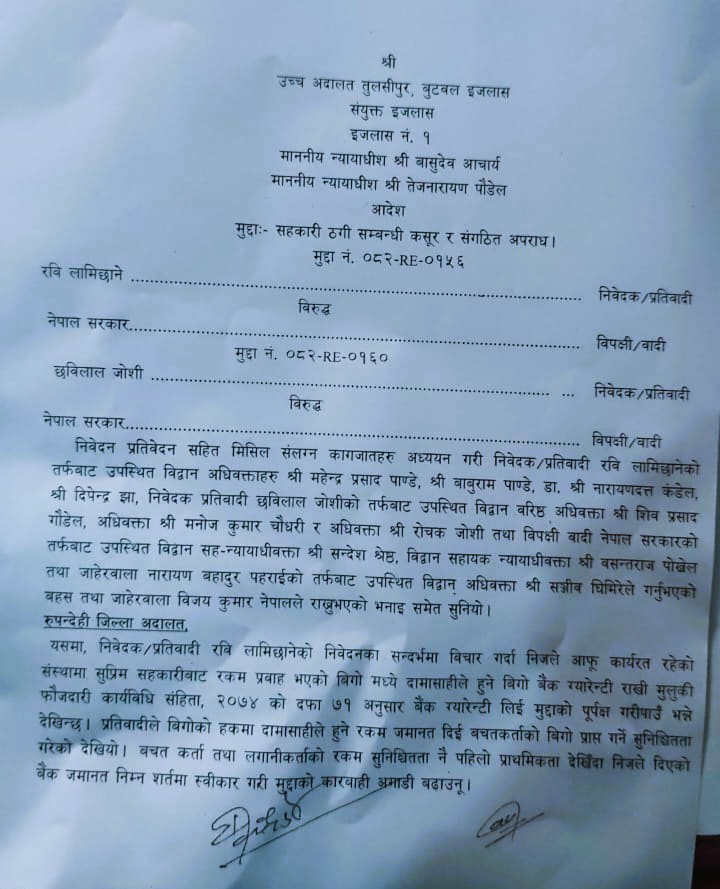 श्री
उच्च अदालत तुलसीपुर, बुटवल इजलास
संयुक्त इजलास
इजलास नं. १
माननीय न्यायाधीश श्री बासुदेव आचार्य
माननीय न्यायाधीश श्री तेजनारायण पौडेल
आदेश
मुद्दाः- सहकारी ठगी सम्बन्धी कसूर र संगठित अपराध।
मुद्दा नं. ०८२-RE-०१५६
रवि लामिछाने ........................................ निवेदक/प्रतिवादी
विरुद्ध
नेपाल सरकार........................................ विपक्षी/वादी
मुद्दा नं. ०८२-RE-०१६०
छविलाल जोशी ........................................ ... निवेदक/प्रतिवादी
विरुद्ध
नेपाल सरकार........................................ विपक्षी/वादी
निवेदन प्रतिवेदन सहित मिसिल संलग्न कागजातहरु अध्ययन गरी निवेदक/प्रतिवादी रवि लामिछानेको
तर्फबाट उपस्थित विद्वान अधिवक्ताहरु श्री महेन्द्र प्रसाद पाण्डे, श्री बाबुराम पाण्डे, डा. श्री नारायणदत्त कंडेल,
श्री दिपेन्द्र झा, निवेदक प्रतिवादी छविलाल जोशीको तर्फबाट उपस्थित विद्वान बरिष्ठ अधिवक्ता श्री शिव प्रसाद
गौडेल, अधिवक्ता श्री मनोज कुमार चौधरी र अधिवक्ता श्री रोचक जोशी तथा विपक्षी वादी नेपाल सरकारको
तर्फबाट उपस्थित विद्वान सह-न्यायाधीवक्ता श्री सन्देश श्रेष्ठ, विद्वान सहायक न्यायाधीवक्ता श्री वसन्तराज पोख्रेल
तथा जाहेरवाला नारायण बहादुर पहराईको तर्फबाट उपस्थित विद्वान् अधिवक्ता श्री सञ्जीव घिमिरेले गर्नुभएको
बहस तथा जाहेरवाला विजय कुमार नेपालले राख्नुभएको भनाइ समेत सुनियो।
रुपन्देही जिल्ला अदालत,
यसमा, निवेदक/प्रतिवादी रवि लामिछानेको निवेदनका सन्दर्भमा विचार गर्दा निजले आफू कार्यरत रहेको
संस्थामा सुप्रिम सहकारीबाट रकम प्रवाह भएको बिगो मध्ये दामासाहीले हुने बिगो बैंक ग्यारेन्टी राखी मुलुकी
फौजदारी कार्यविधि संहिता, २०७४ को दफा ७१ अनुसार बैंक ग्यारेन्टी लिई मुद्दाको पूर्पक्ष गरीपाउँ भन्ने
देखिन्छ। प्रतिवादीले बिगोको हकमा दामासाहीले हुने रकम जमानत दिई बचतकर्ताको बिगो प्राप्त गर्ने सुनिश्चितता
गरेको देखियो। बचत कर्ता तथा लगानीकर्ताको रकम सुनिश्चितता नै पहिलो प्राथमिकता देखिँदा निजले दिएको
बैंक जमानत निम्न शर्तमा स्वीकार गरी मुद्दाको कारवाही अगाडी बढाउनू।